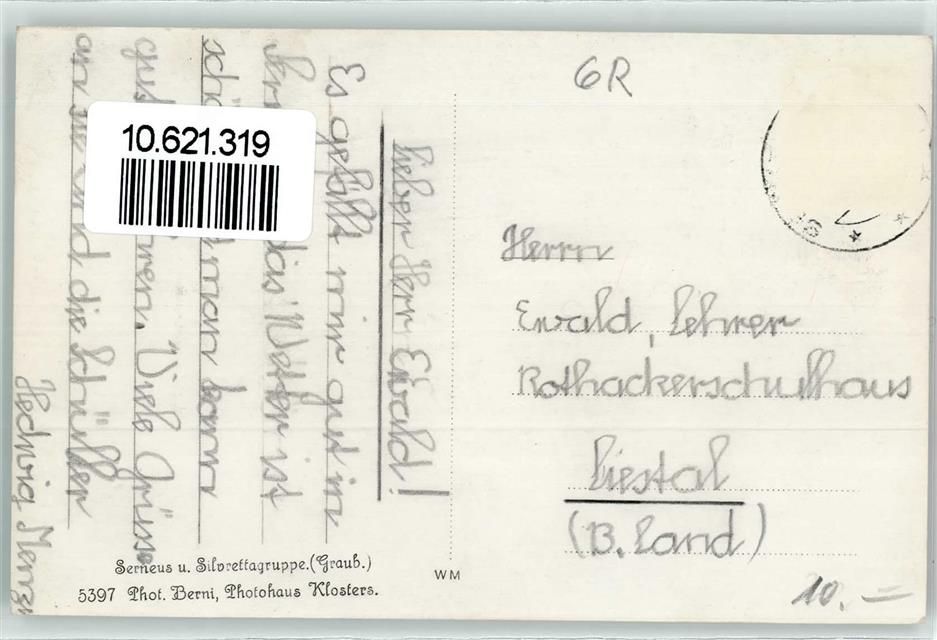 6R
10.621.319
Lieber Herr Ewald!
Es gefällt mir gut in
das Wetter ist
man kann
Viele Grüsse
an Sie und die Schüller
Hedwig
Herrn
Ewald, Lehrer
Rothackerschulhaus
Liestal
(B. Land)
Serneus u. Silvrettagruppe.(Graub.)
5397 Phot. Berni, Photohaus Klosters.
WM
10.—